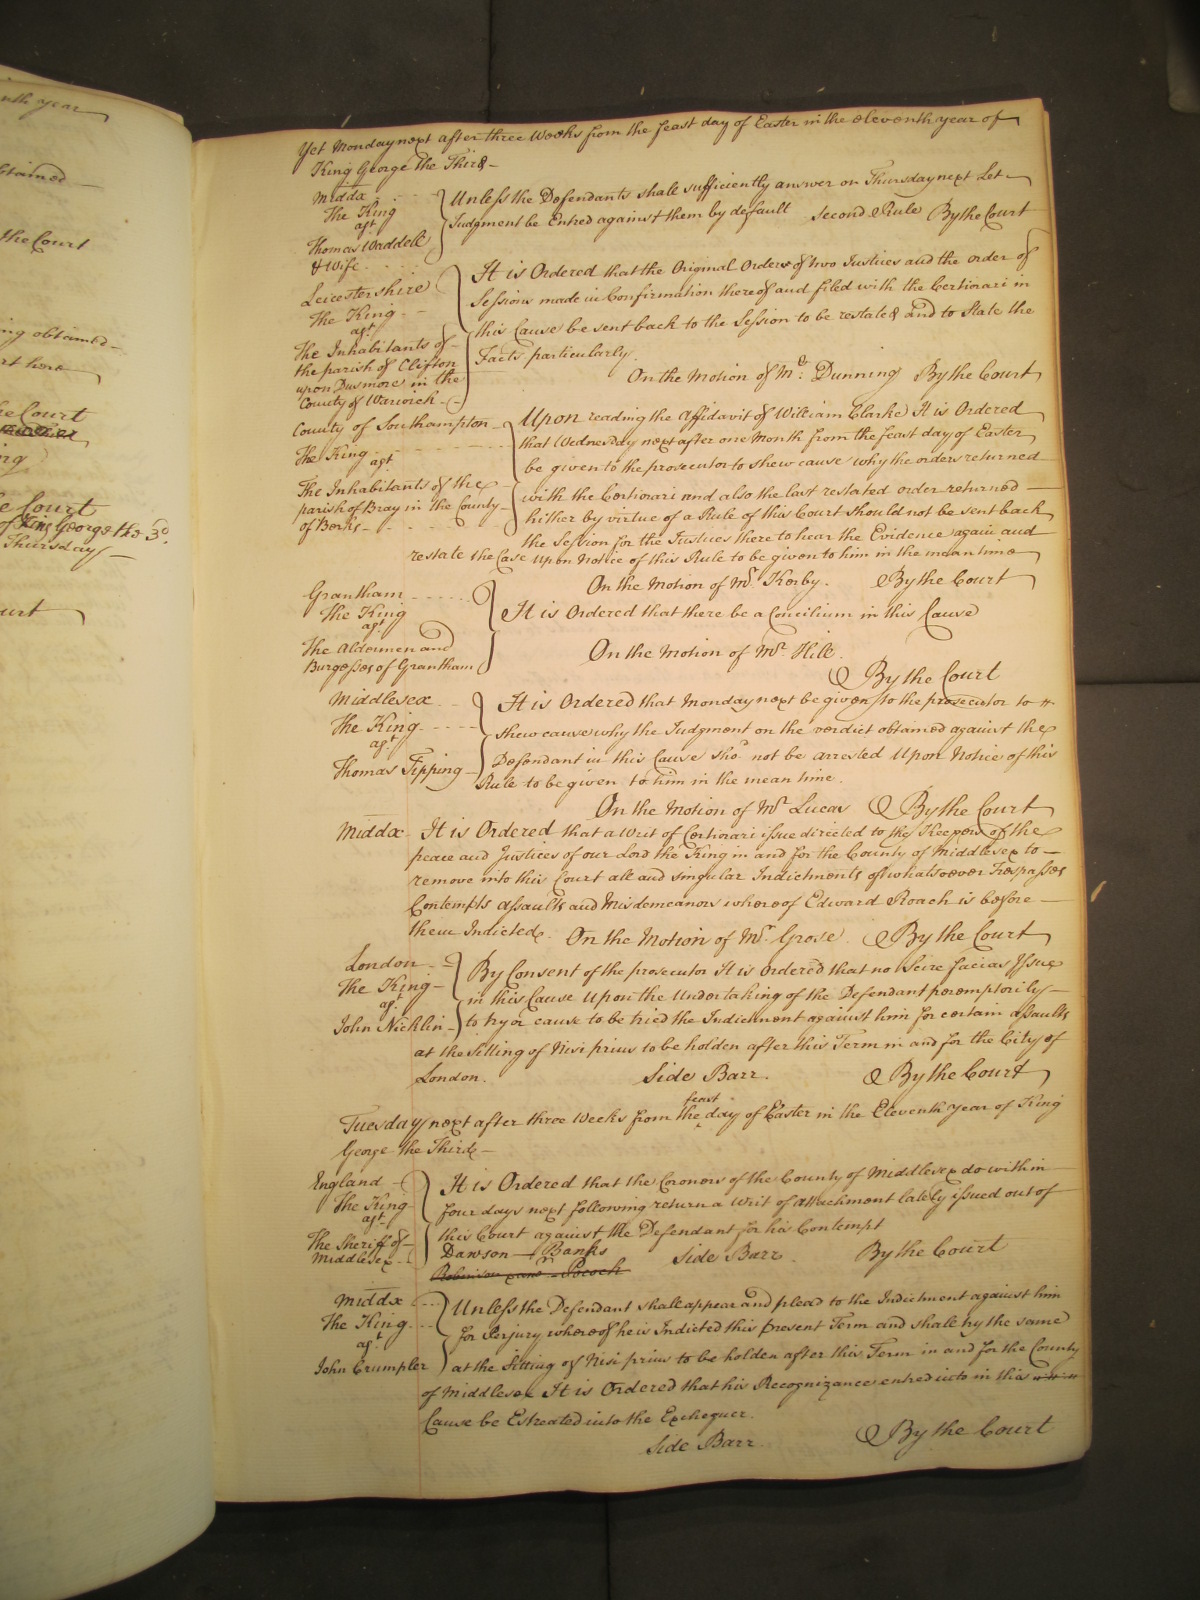 nth year
btained
the Court
ing obtained
rt here
he Court
e Court
of King George the 3d.
Thursday
ourt
Yet Monday next after three Weeks from the feast day of Easter in the Eleventh year of
King George the Third
Middx
The King
agt
Thomas Waddell
& Wife
Unless the Defendants shall sufficiently answer on Thursday next Let
Judgment be Entred against them by default Second Rule By the Court
Leicestershire
The King
agt
The Inhabitants of
the parish of Clifton
upon Dusmore in the
County of Warwick
It is Ordered that the Original Order of two Justices and the order of
Sessions made in Confirmation thereof and filed with the Certiorari in
this Cause be sent back to the Session to be restated and to State the
Facts particularly.
On the Motion of Mr. Dunning By the Court
County of Southampton
The King
agt
The Inhabitants of the
parish of Bray in the County
of Berks
Upon reading the affidavit of William Clarke It is Ordered
that Wednesday next after one Month from the feast day of Easter
be given to the prosecutor to shew cause why the orders returned
with the Certiorari and also the last restated order returned
hither by virtue of a Rule of this Court should not be sent back
the Session for the Justices there to hear the Evidence again and
restate the Case Upon Notice of this Rule to be given to him in the mean time
On the Motion of Mr. Kerby. By the Court
Grantham
The King
agt
The Aldermen and
Burgesses of Grantham
It is Ordered that there be a Concilium in this Cause
On the Motion of Mr. Hill.
By the Court
Middlesex
The King
agt
Thomas Tipping
It is Ordered that Monday next be given to the prosecutor to
shew cause why the Judgment on the verdict obtained against the
Defendant in this Cause shod. not be arrested Upon Notice of this
Rule to be given to him in the mean time.
On the Motion of Mr. Lucas By the Court
Middx It is Ordered that a Writ of Certiorari issue directed to the Keepers of the
peace and Justices of our Lord the King in and for the County of Middlesex to
remove into this Court all and singular Indictments of whatsoever Trespasses
Contempts assaults and Misdemeanors whereof Edward Roach is before
them Indicted. On the Motion of Mr. Grose. By the Court
London
The King
agt
John Nicklin
By Consent of the prosecutor It is Ordered that no Scire facias Issue
in this Cause Upon the Undertaking of the Defendant peremptorily
to try or cause to be tried the Indictment against him for certain assaults
at the Sitting of Nisi prius to be holden after this Term in and for the City of
London. Side Barr. By the Court
Tuesday next after three Weeks from the feast day of Easter in the Eleventh year of King
George the Third
England
The King
agt
The Sheriff of
Middlesex
It is Ordered that the Coroners of the County of Middlesex do within
four days next following return a Writ of attachment lately issued out of
this Court against the Defendant for his Contempt
Dawson Banks Side Barr. By the Court
Middx
The King
agt
John Crumpler
Unless the Defendant shall appear and plead to the Indictment against him
for Perjury whereof he is Indicted this present Term and shall try the same
at the Sitting of Nisi prius to be holden after this Term in and for the County
of Middlesex It is Ordered that his Recognizance entred into in this
Cause be Estreated into the Exchequer.
Side Barr. By the Court